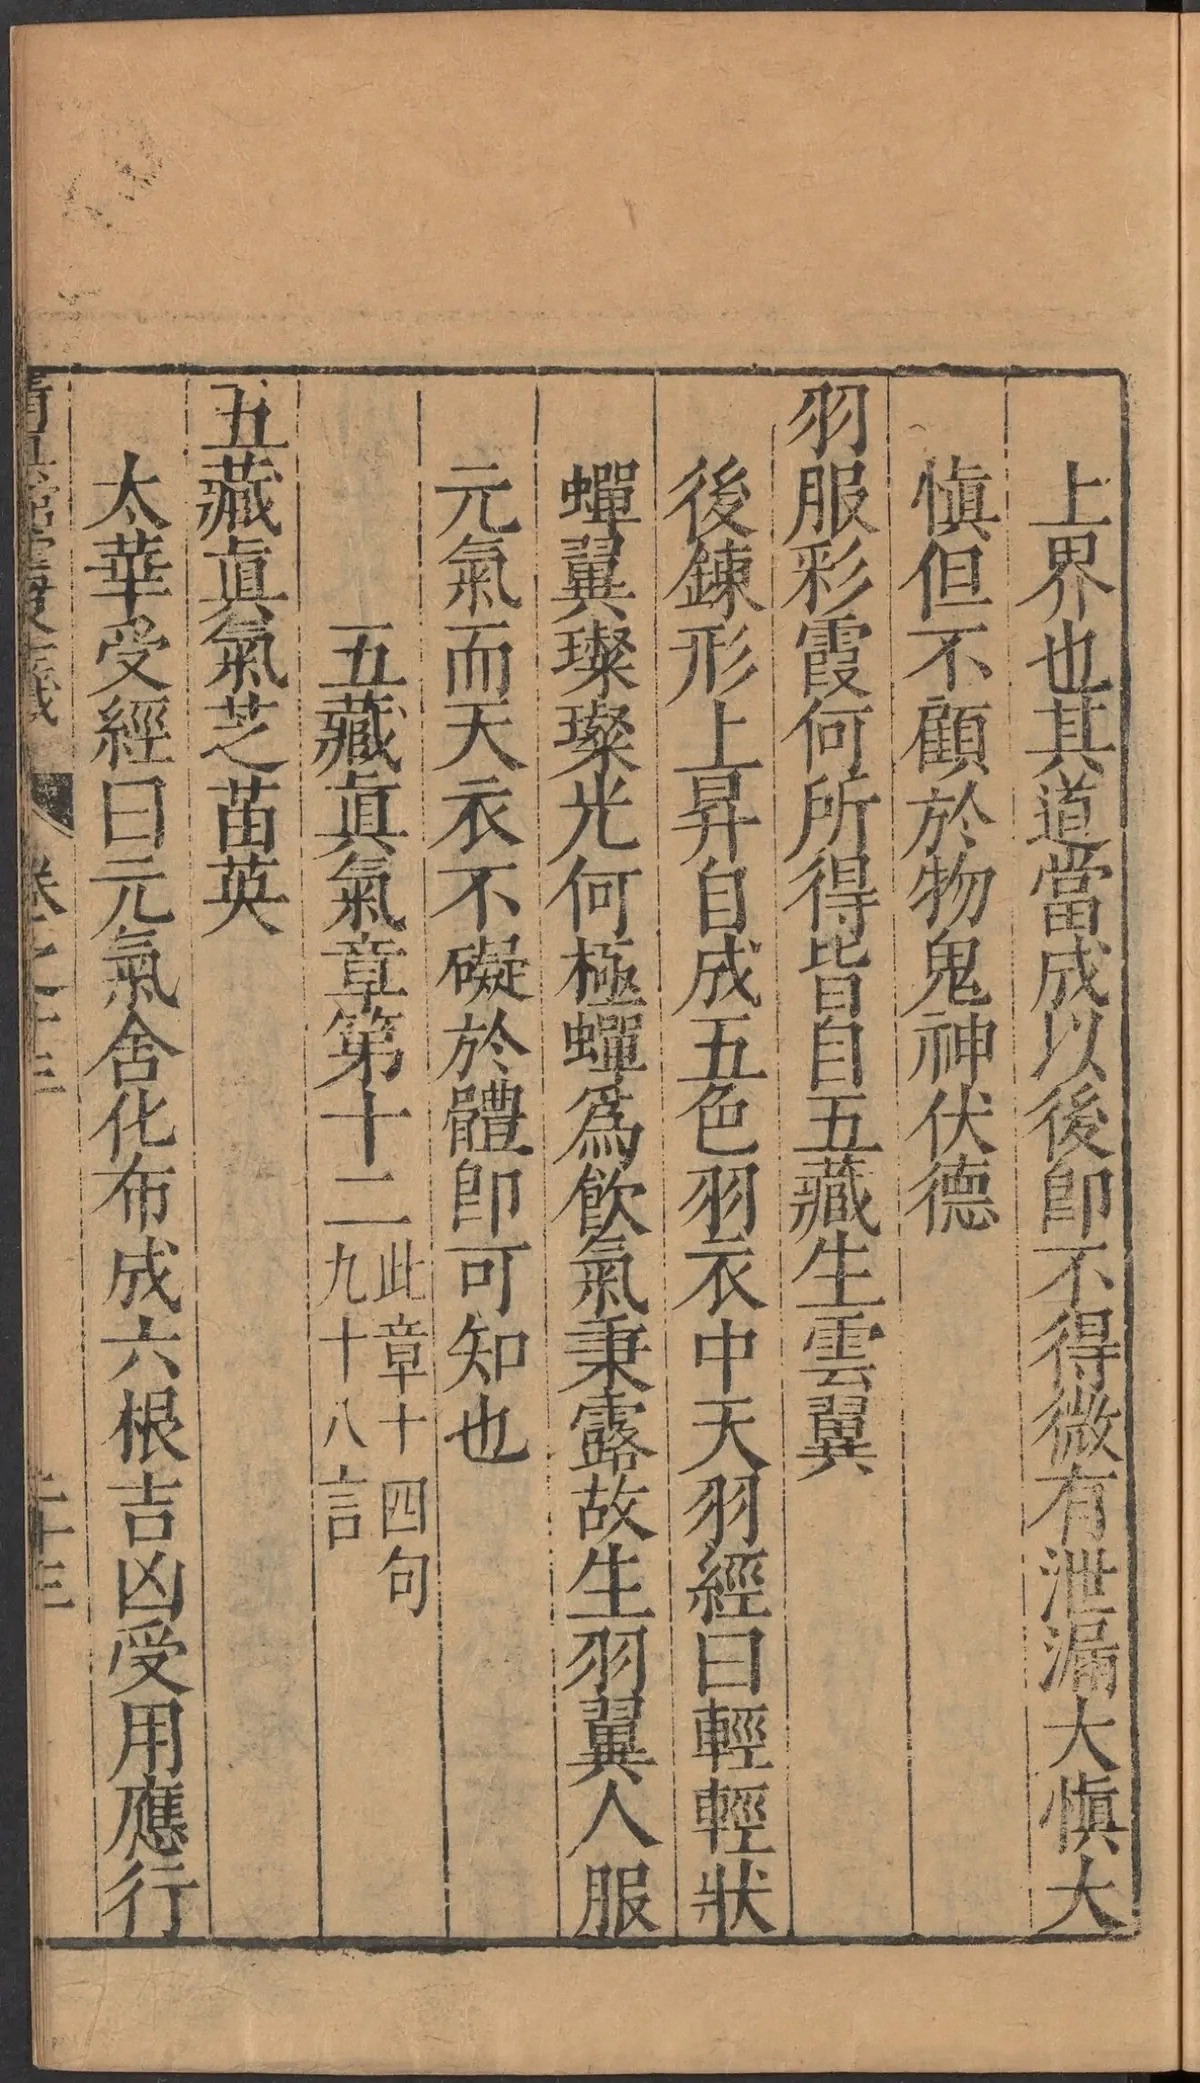 上界也其道當成以後卽不得微有泄漏大愼大
愼但不顧於物鬼神伏德
羽服彩霞何所得皆自五藏生雲翼
後鍊形上昇自成五色羽衣中天羽經曰輕輕狀
蟬翼璨璨光何極蟬爲飲氣秉露故生羽翼人服
元氣而天衣不礙於體卽可知也
五藏眞氣章第十二此章十四句
九十八言
五藏眞氣芝苗英
太華受經曰元氣舍化布成六根吉凶受用應行
卷之十三
二十三